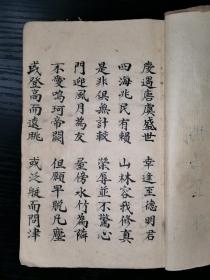 慶遇唐虞盛世　幸逢至德明君
四海兆民有賴　山林容我修真
是非俱無計較　榮辱並不驚心
門迎風月為友　屋傍水竹為隣
不愛鳴珂帝闕　但願平脫凡塵
或登高而遠眺　或泛艇而問津